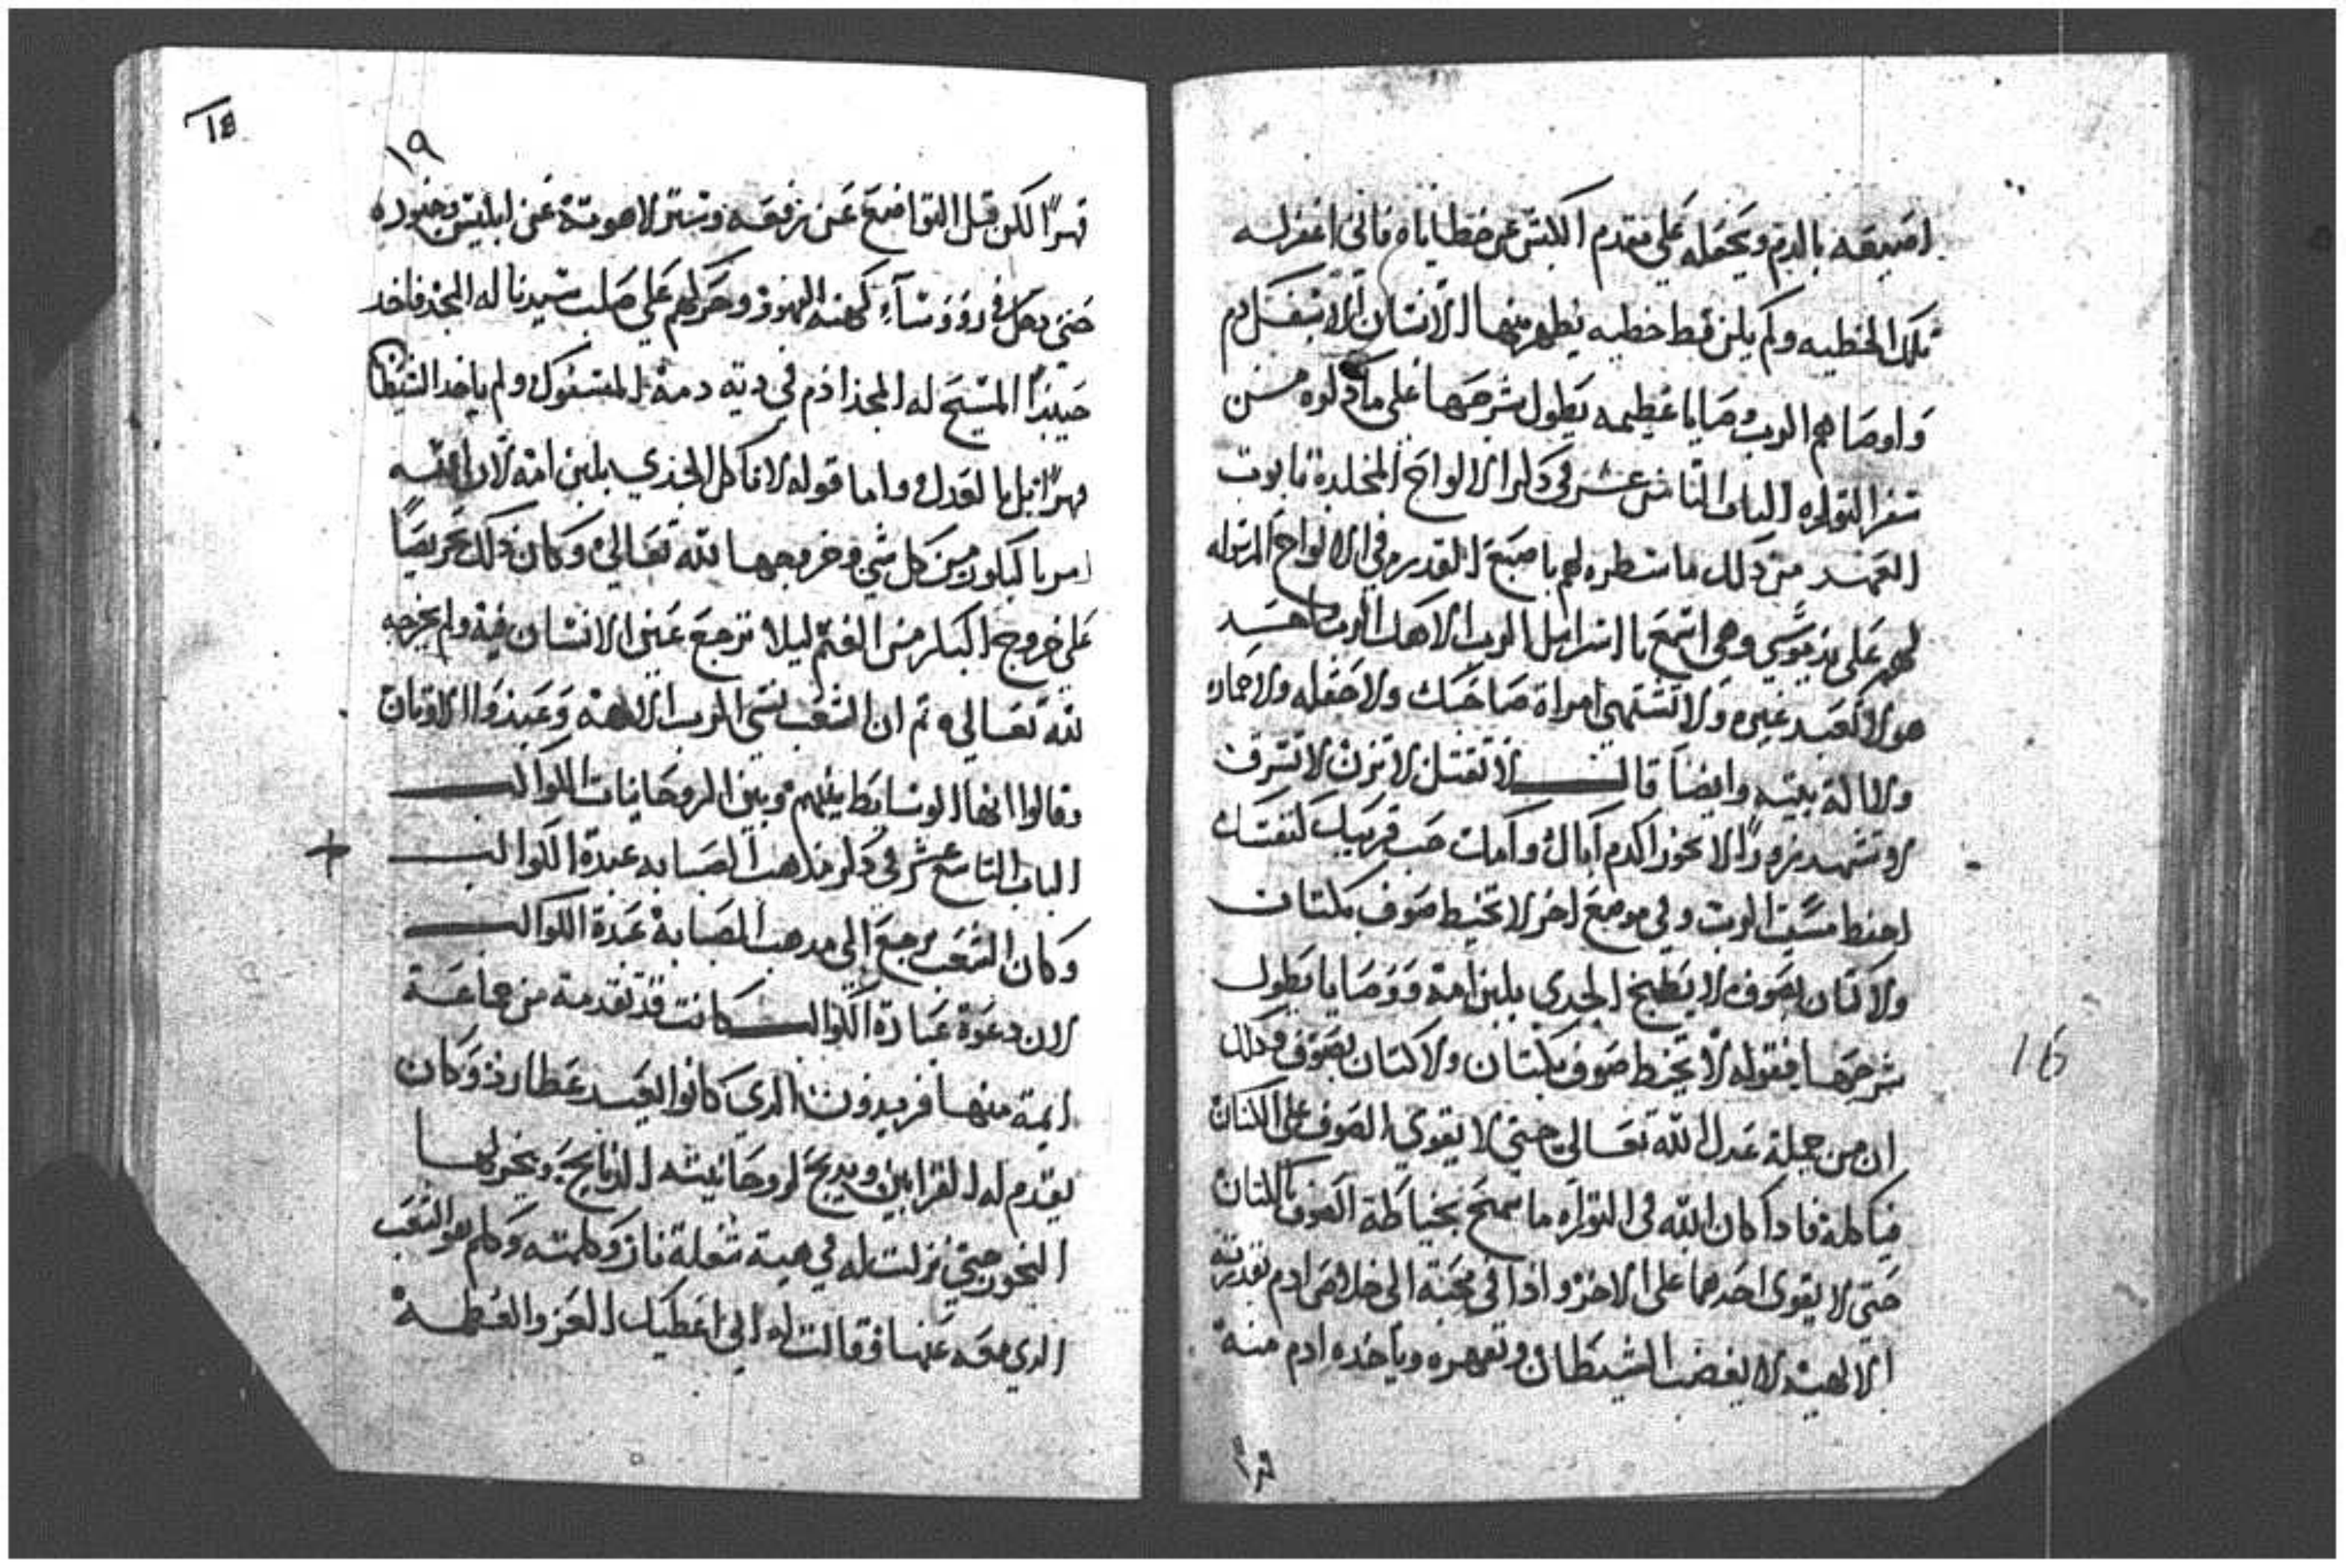 اصبعه بالدم ويجعله على مقدم الكبش عن خطاياه فاني اغفر له
تلك الخطيه ولم يكن قط خطيه يطهر منها الانسان الا بسفك دم
واوصاهم الرب وصايا عظيمه يطول شرحها على ما ذكروه من
سفر التوراه الباب الثامن عشر في ذكر الالواح المخلده تابوت
العهد من ذلك ما سطره لهم باصبع القدره في الالواح المنزله
لهم على يد موسي وهي اسمع يا اسرايل الرب الاهك
هو لا تعبد غيره ولا تشتهي امراة صاحبك ولا حقله ولا حماره
ولا الة بيته وايضا قال لا تقتل لا تزن لا تسرق
لا تشهد بزور اكرم اباك وامك حب قريبك كنفسك
احفظ سبت الرب وفي موضع اخر لا تخيط صوف بكتان
ولا كتان بصوف لا يطبخ الجدي بلبن امه ووصايا يطول
شرحها فقوله لا يخيط صوف بكتان ولا كتان بصوف وذلك
ان من جملة عدل الله تعالي حتي لا يقوي الصوف على الكتان
فياكله فاذا كان الله في التوراه ما سمح بخياطة الصوف بالكتان
حتى لا يقوى احدهما على الاخر واذا في محبته الى خلاص ادم بقدرته
الالهيه لا يغضب الشيطان ويقهره وياخذه ادم منه
قهرا
18
١٩
قهرا لكن قبل التواضع عن رفعه وستر لاهوته عن ابليس وجنوده
حتي دخل في رووساء كهنه اليهود وحركهم على صلب سيدنا له المجد فاخد
حينيذا المسيح له المجد ادم في ديه دمه المسفوك ولم ياخد الشيطان
قهرا بل بالعدل واما قوله لا تاكل الجدي بلبن امه لان الله
امر باكبلور من كل شي وخروجها لله تعالي وكان ذلك تحريصا
على خروج البكر من الغنم ليلا ترجع عين الانسان فيه ولم يخرجه
لله تعالي ثم ان الشعب نسي الرب الالاهه وعبدوا الاوتان
وقالوا انها الوسايط بينهم وبين الروحانيات الكواكب
الباب التاسع عشر في ذكر مذاهب الصابه عبدة الكواكب
وكان الشعب رجع الي مذهب الصابة عبدة الكواكب
لان دعوة عبادة الكواكب كانت قد تقدمة من جماعة
ايمة منها فريدون الدي كانوا لعبد عطارد وكان
يقدم له القرابين ويدبح لروحانيته الدبايح ويبخر لها
البخور حتي نزلت له في هية شعلة نار وكلمته وكلم هو الشعب
الدي معه عنها فقالت له اني اعطيك العز والعظمة
16